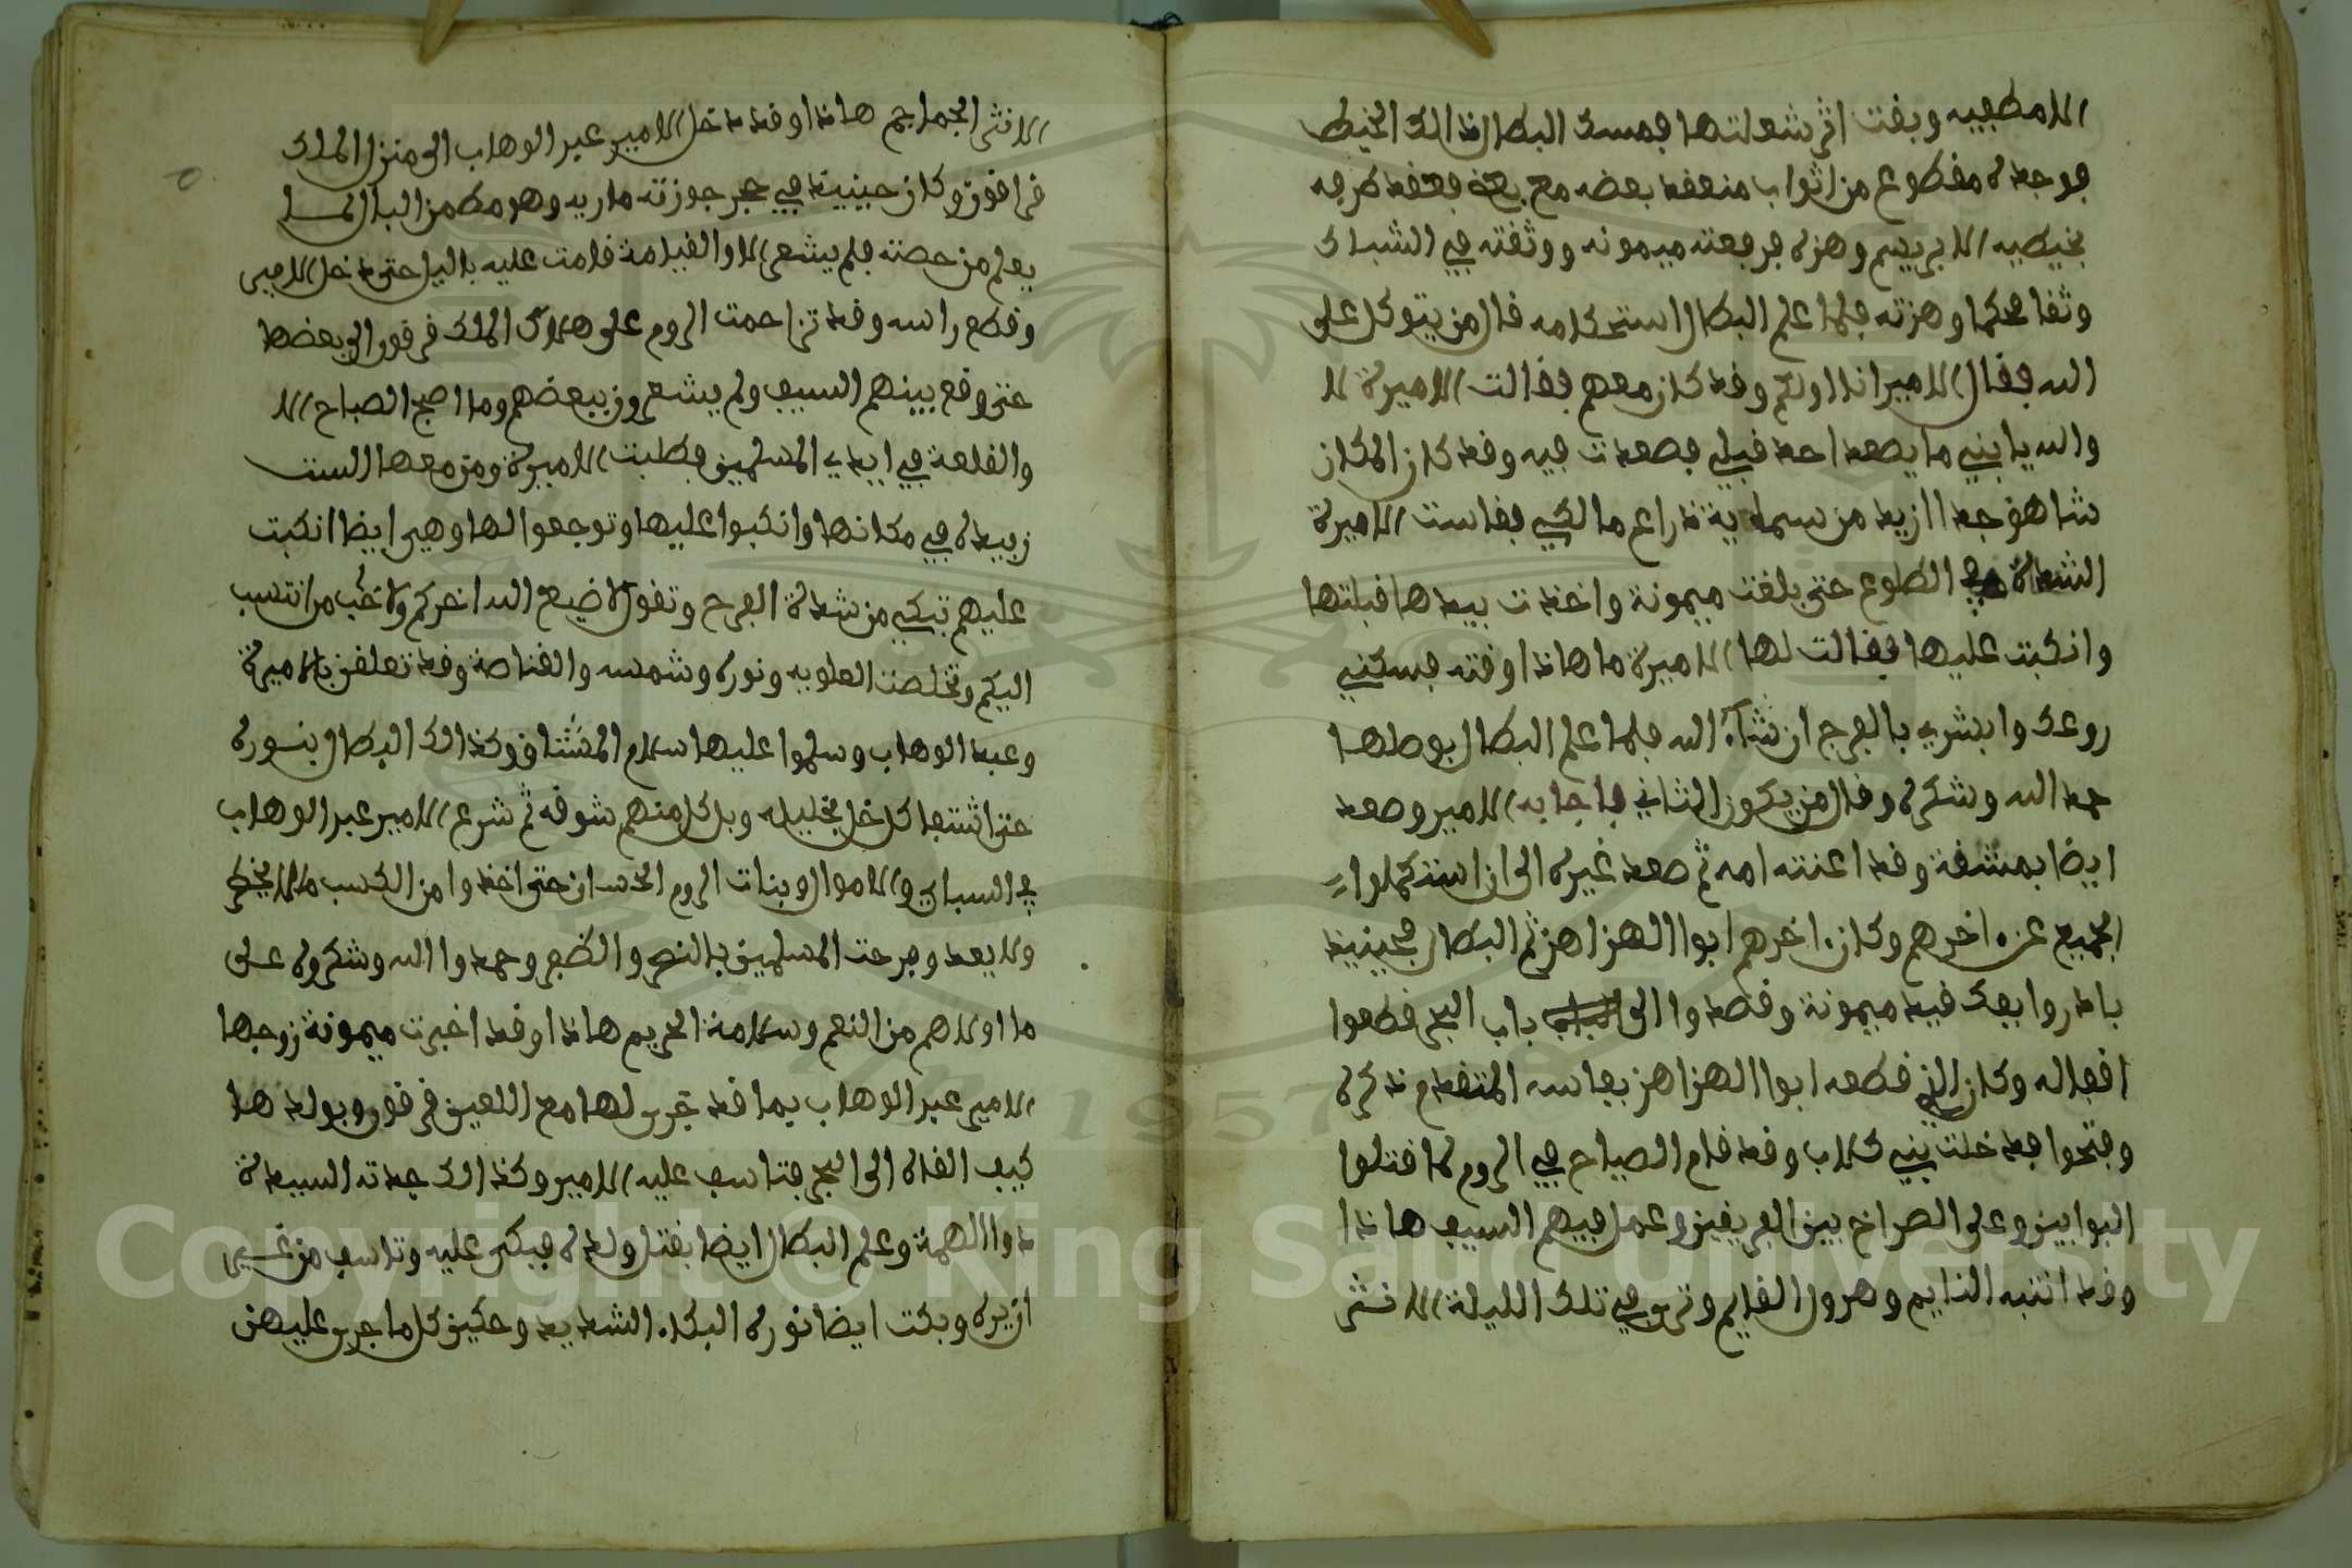 الامطفيه وبقت اثر شعلتها فمسك البطال ذالك الخيط
فوجده مقطوع من اثواب منعقد بعضه مع بعض فعقد طرفه
بخيطيه الابريسم وهزه فرفعته ميمونه ووثقته في الشباك
وثقا محكما وهزته فلما علم البطال استحكامه قال من يتوكل على
الله فقال الامير انا اولكم وقد كان معهم فقالت الاميرة لا
والله يا بني ما يصعد احد قبلي فصعدت فيه وقد كان المكان
شاهق جدا ازيد من سماية ذراع مالكي فقاست الاميرة
الشدة في الطلوع حتى بلغت ميمونة واخذت بيدها قبلتها
وانكبت عليها فقالت لها الاميرة ما هاذا وقته فسكني
روعك وابشري بالفرج ان شاء الله فلما علم البطال بوصلها
حمد الله وشكره وقال من يكون الثاني فاجابه الامير وصعد
ايضا بمشقة وقد اعنته امه ثم صعد غيره الى ان استكملوا
الجميع عن اخرهم وكان اخرهم ابوا الهزاهز ثم البطال فحينيذ
بادروا بفك قيد ميمونة وقصدوا الى باب البحر قطعوا
اقفاله وكان الذي قطعه ابوا الهزاهز بفاسه المتقدم ذكره
وفتحوا فدخلت بني كلاب وقد قام الصياح في الروم لما قتلوا
البوابين وعلى الصراخ بين الفريقين وعمل فيهم السيف هاذا
وقد انتبه النايم وهرول القايم وترى في تلك الليلة الا نثر
الا نثر الجماجم هاذا وقد دخل الامير عبد الوهاب الى منزل الملك
قراقون وكان حينيذ في حجر جوزته ماريه وهو مطمن البال لما
يعلم من حصنه فلم يشعر الا والقيامة قامت عليه باليل حتى دخل الامير
وقطع راسه وقد تزاحمت الروم على هلاك الملك قرقون الى بعضها
حتى وقع بينهم السيف ولم يشعرون ببعضهم وما اصبح الصباح الا
والقلعة في ايدي المسلمين فطلبت الاميرة ومن معها الست
زبيدة في مكانها وانكبوا عليها وتوجعوا لها وهي ايضا انكبت
عليهم تبكي من شدة الفرح وتقول لا ضيع الله اخركم ولا خيب من انتسب
اليكم وتخلصت العلويه ونوره وشمسه والقناصة وقد تعلقن بالاميرة
وعبد الوهاب وسلموا عليها سلام المشتاق وكذالك البطال بنوره
حتى اشتفا كل خل بخليله وبل كل منهم شوقه ثم شرع الامير عبد الوهاب
في السباي والاموال وبنات الروم الحسان حتى اخذوا من الكسب ما لا يحصى
ولا يعد وفرحت المسلمين بالنصر والظفر وحمدوا الله وشكروه على
ما اولاهم من النعم وسلامة الحريم هاذا وقد اخبرت ميمونة زوجها
الامير عبد الوهاب بما قد جرى لها مع اللعين قرقون وبولدها
كيف القاه الى البحر فتاسف عليه الامير وكذالك جدته السيدة
ذوا الهمة وعلم البطال ايضا بقتل ولده فبكى عليه وتاسف من غير
ان يره وبكت ايضا نوره البكاء الشديد وحكين كل ما جرى عليهن